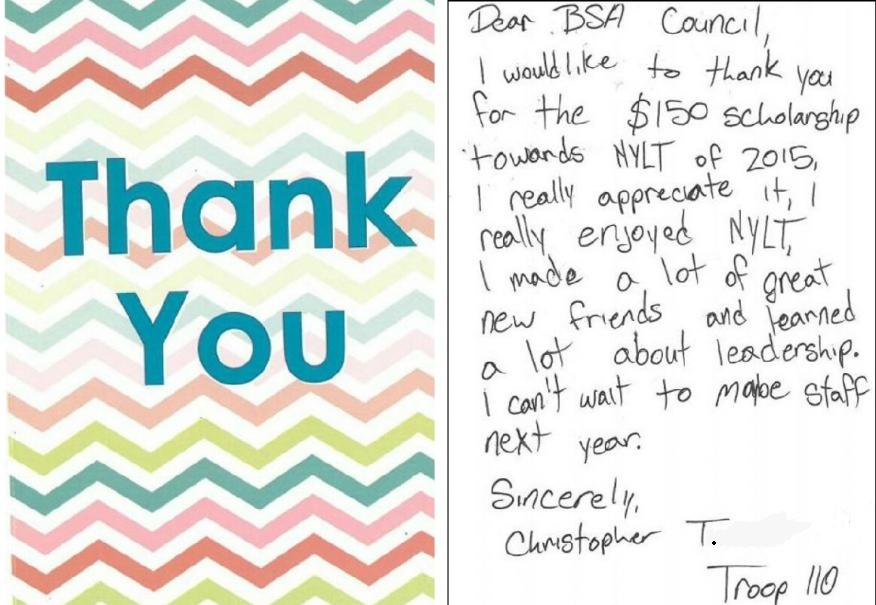 Thank
You
Dear BSA Council,
I would like to thank you
for the $150 scholarship
towards NYLT of 2015,
I really appreciate it, I
really enjoyed NYLT,
I made a lot of great
new friends and learned
a lot about leadership.
I can't wait to maybe staff
next year.
Sincerely,
Christopher T.
Troop 110